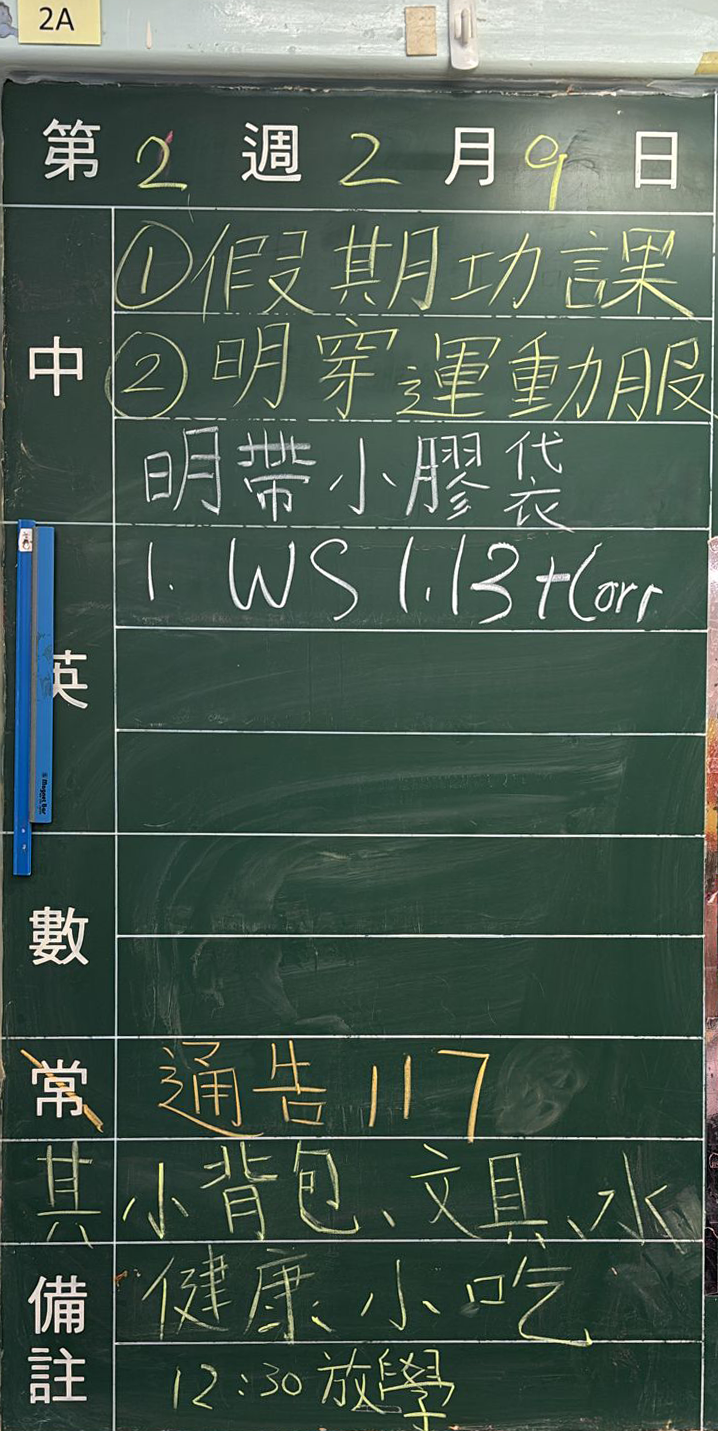 2A
第 2 週 2 月 9 日
中
①假期功課
②明穿運動服
明帶小膠袋
英
1. WS 1.13 + Corr
數
常 通告117
其 小背包、文具、水
備註
健康、小吃
12:30 放學